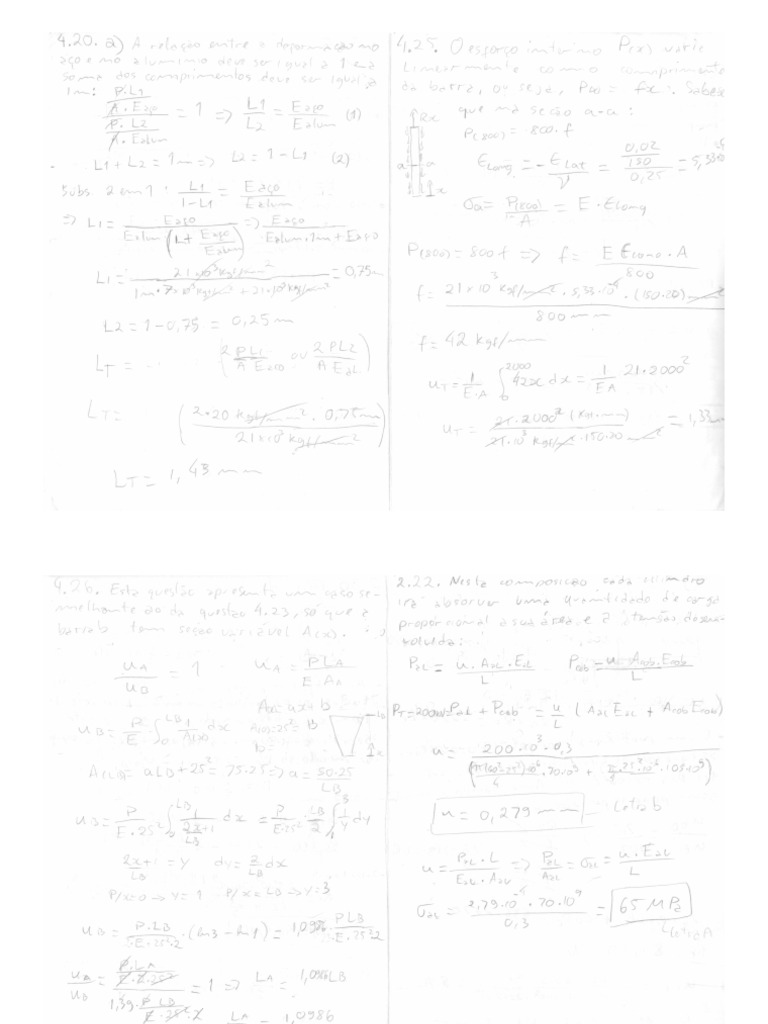 4.20. a) A relação entre a deformação no
aço e no alumínio deve ser igual a 1 e a
soma dos comprimentos deve ser igual a
1m:
P.L1
A.Eaço
P.L2
A.Ealum
= 1 => L1/L2 = Eaço/Ealum (1)
L1 + L2 = 1m => L2 = 1 - L1 (2)
Subs. 2 em 1: L1/1-L1 = Eaço/Ealum
=> L1 = Eaço/Ealum(1+Eaço/Ealum) => Eaço/Ealum.1m + Eaço
L1 = 21×10³kgf/mm²/1m.7×10³kgf/mm² + 21×10³kgf/mm² = 0,75m
L2 = 1 - 0,75 = 0,25m
LT = (2PL1/A Eaço ou 2PL2/A EaL)
LT = (2.20 kgf/mm². 0,75m/21×10³ kgf/mm²)
LT = 1,43mm
4.25. O esforço interno P(x) varia
linearmente com o comprimento
da barra, ou seja, P(x) = fx. Sabese
que na seção a-a:
P(800) = 800.f
Rx
a a
x
Elong = -Elat/ν = 0,02/150/0,25 = 5,33×10
σa = P(800)/A = E.Elong
P(800) = 800f => f = E Elong.A/800
f = 21×10³ kgf/mm². 5,33.10⁻⁴.(150.20)mm²/800mm
f = 42 kgf/mm
uT = 1/E.A ∫ 2000 0 42x dx = 1/EA 21.2000²
uT = 21.2000² (kgf.mm)/21.10³ kgf/mm².150.20mm² = 1,33mm
4.26. Esta questão apresenta um caso se-
melhante ao da questão 4.23, só que a
barra b tem seção variável A(x).
uA/uB = 1 uA = PLA/E AA
A(x) = ax + b
A(0) = 25² = B
b =
LB
x
uB = P/E ∫ LB 0 1/A(x) dx
A(LB) = aLB + 25² = 75.25 => a = 50.25/LB
uB = P/E.25² ∫ LB 0 1/2x/LB+1 dx = P/E.25² . LB/2 ∫ 3 1 1/y dy
2x/LB + 1 = y dy = 2/LB dx
P/x=0 → y=1 P/x=LB → y=3
uB = P.LB/E.25².2 .(ln3 - ln1) = 1,0986. PLB/E.25².2
uA/uB = P.LA = 1 => LA = 1,0986LB
LA = 1,0986
2.22. Nesta composição cada cilindro
irá absorver uma quantidade de carga
proporcional a sua área, e a tensão desen-
volvida:
PaL = u.AaL.EaL/L Pcob = u.Acob.Ecob/L
PT = 200kN = PaL + Pcob = u/L (AaL EaL + Acob Ecob)
u = 200.10³.0,3/(π(60²-25²).10⁻⁶/4 .70.10⁹ + π.25².10⁻⁶/4 .105.10⁹)
u = 0,279mm Letra b
u = PaL.L/EaL.AaL => PaL/AaL = σaL = u.EaL/L
σaL = 2,79.10⁻⁴.70.10⁹/0,3 = 65 MPa
Letra A